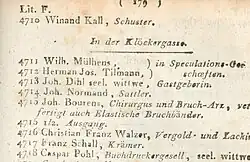 ( 179 )
Lit. F.
4710 Winand Kall, Schuster.
In der Klöckergasse.
4711 Wilh. Mülhens, } in Speculations-Ge-
4712 Herman Jos. Tillmann, } schæften.
4713 Joh. Dihl seel. wittwe, Gastgeberin.
4714 Joh. Normand, Sattler.
4715 Joh. Bourens, Chirurgus und Bruch-Arz, ver
fertigt auch Elastische Bruchbänder.
4716 1/2. Ausgang.
4716 Christian Franz Walzer, Vergold- und
4717 Franz Schall, Krämer.
4718 Caspar Pohl, Buchdruckergesell, seel.